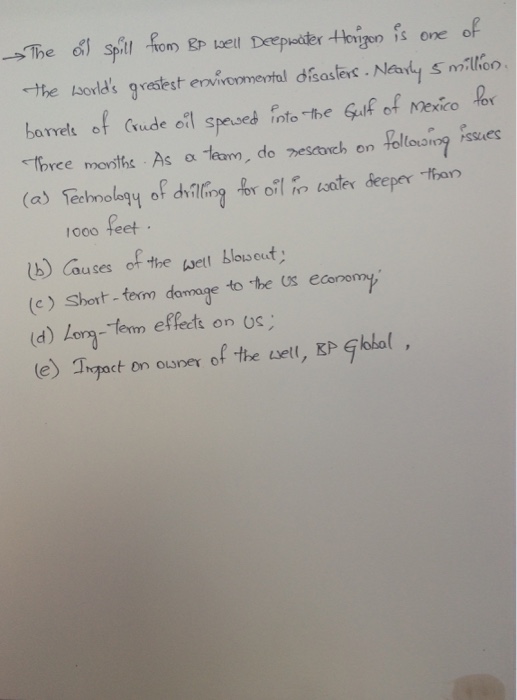 →The oil spill from BP well Deepwater Horizon is one of
the world's greatest environmental disasters. Nearly 5 million
barrels of Crude oil spewed into the Gulf of Mexico for
three months. As a team, do research on following issues
(a) Technology of drilling for oil in water deeper than
1000 feet.
(b) Causes of the well blowout;
(c) Short-term damage to the US economy;
(d) Long-Term effects on US;
(e) Impact on owner of the well, BP Global,